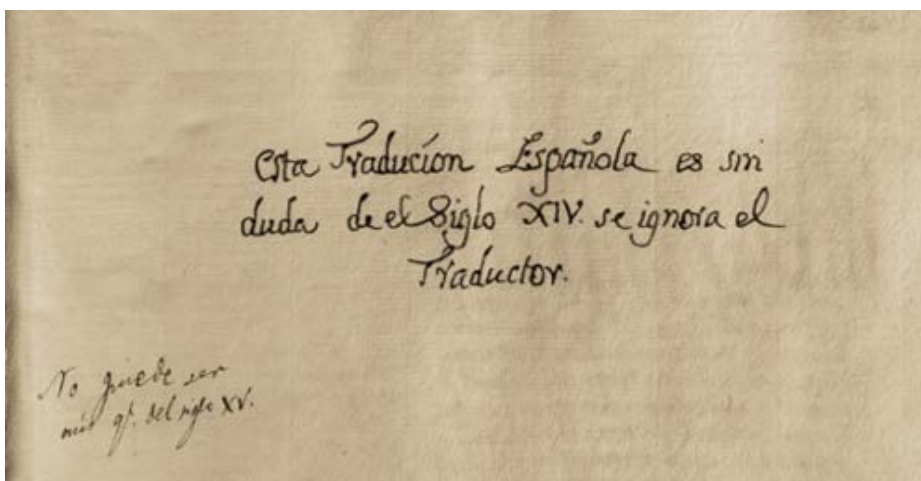 Esta Traducion Española es sin
duda de el Siglo XIV. se ignora el
Traductor.
No puede ser
mas q.e del siglo XV.